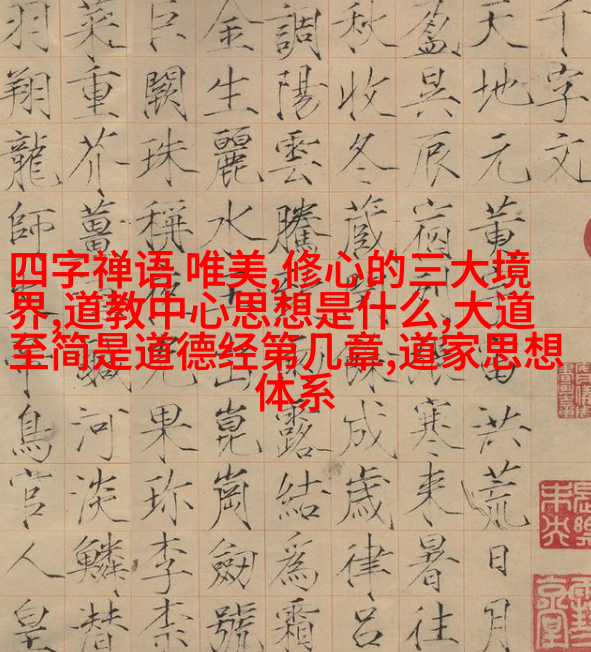 四字禅语 唯美,修心的三大境
界,道教中心思想是什么,大道
至简是道德经第几章,道家思想
体系
千字文
天地元黄宇宙洪荒日月
盈昃辰宿列張寒来暑往
秋收冬蔵閏餘成歳律吕
調陽雲騰致雨露結為霜
金生麗水玉出崑崗劒號
巨闕珠稱夜光果珎李柰
菜重芥薑海鹹河淡鱗潜
羽翔龍師火帝鳥官人皇